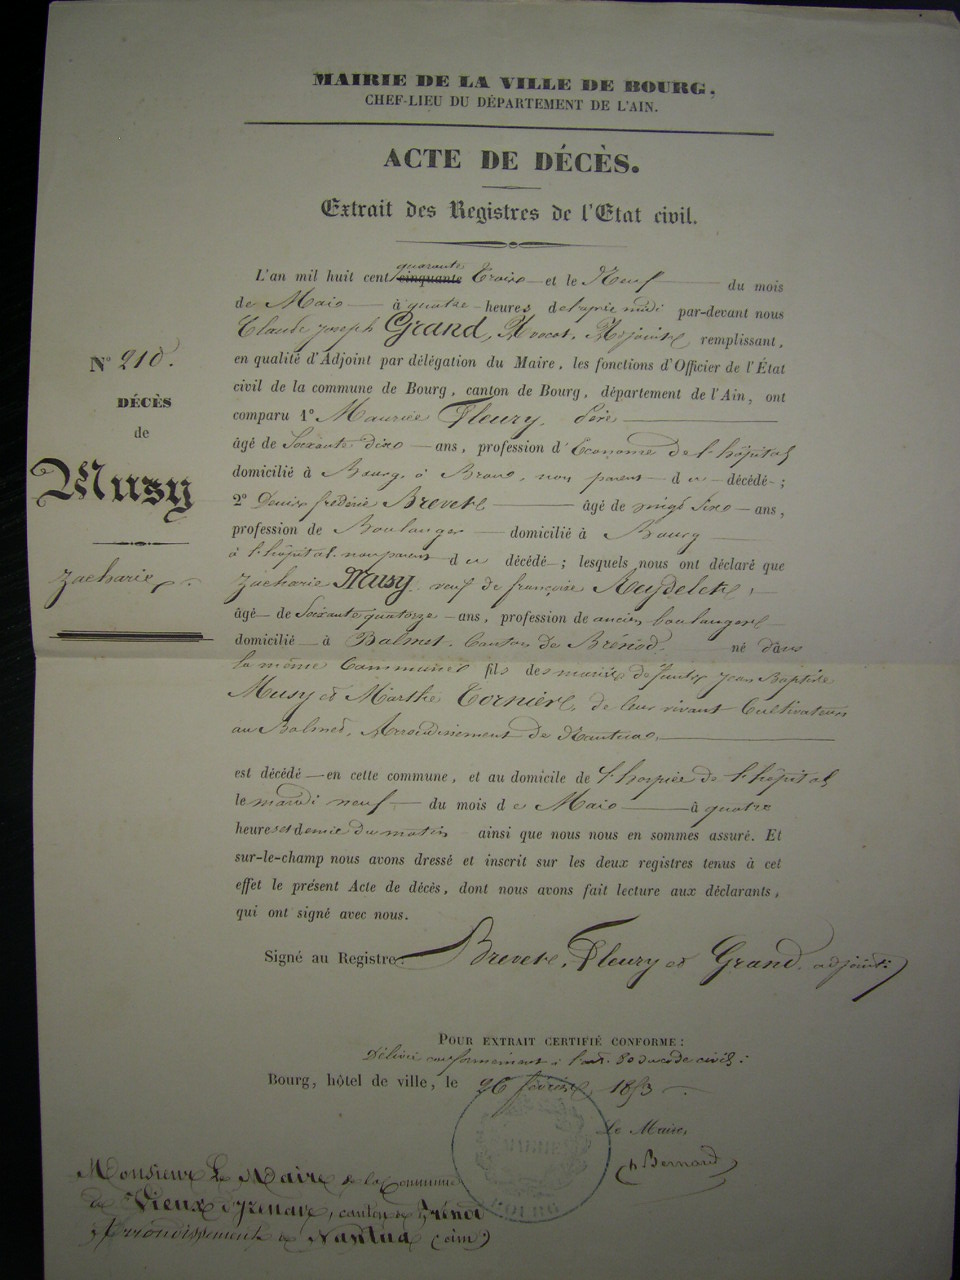 MAIRIE DE LA VILLE DE BOURG.
CHEF-LIEU DU DÉPARTEMENT DE L'AIN.
ACTE DE DÉCÈS.
Extrait des Registres de l'Etat civil.
quarante
L'an mil huit cent cinquante Trois et le Neuf du mois
de Mai à quatre heures de l'après midi par-devant nous
Claude Joseph Grand, Avocat, Adjoint remplissant,
en qualité d'Adjoint par délégation du Maire, les fonctions d'Officier de l'État
civil de la commune de Bourg, canton de Bourg, département de l'Ain, ont
comparu 1° Maurice Fleury,
âgé de Soixante dix ans, profession d'Econome de l'hôpital
domicilié à Bourg, non parent du décédé ;
2° Denis frédéric Brevet âgé de ans,
profession de Boulanger domicilié à Bourg
à l'hôpital non parent du décédé ; lesquels nous ont déclaré que
Zacharie Musy, veuf de françoise Reydelet,
âgé de Soixante quatorze ans, profession de ancien boulanger
domicilié à Balmet. Canton de Brénod. né dans
la même Commune fils des mariés defunts Jean Baptiste
Musy et Marthe Tornier, de leur vivant Cultivateurs
au Balmet, Arrondissement de Nantua,
est décédé en cette commune, et au domicile de l'hospice de l'hôpital
le mardi neuf du mois de Mai à quatre
heures et demie du matin ainsi que nous nous en sommes assuré. Et
sur-le-champ nous avons dressé et inscrit sur les deux registres tenus à cet
effet le présent Acte de décès, dont nous avons fait lecture aux déclarants,
qui ont signé avec nous.
Signé au Registre: Brevet, Fleury et Grand, adjoint.
N° 210.
DÉCÈS
de
Musy
Zacharie
POUR EXTRAIT CERTIFIÉ CONFORME :
Délivré conformément à l'art. 80 du code civil :
Bourg, hôtel de ville, le 26 février, 1853
Le Maire,
Bernard
MAIRIE
BOURG
Monsieur Le Maire de la Commune
de Vieux d'Izenave, canton de Brénod
Arrondissement de Nantua (ain)